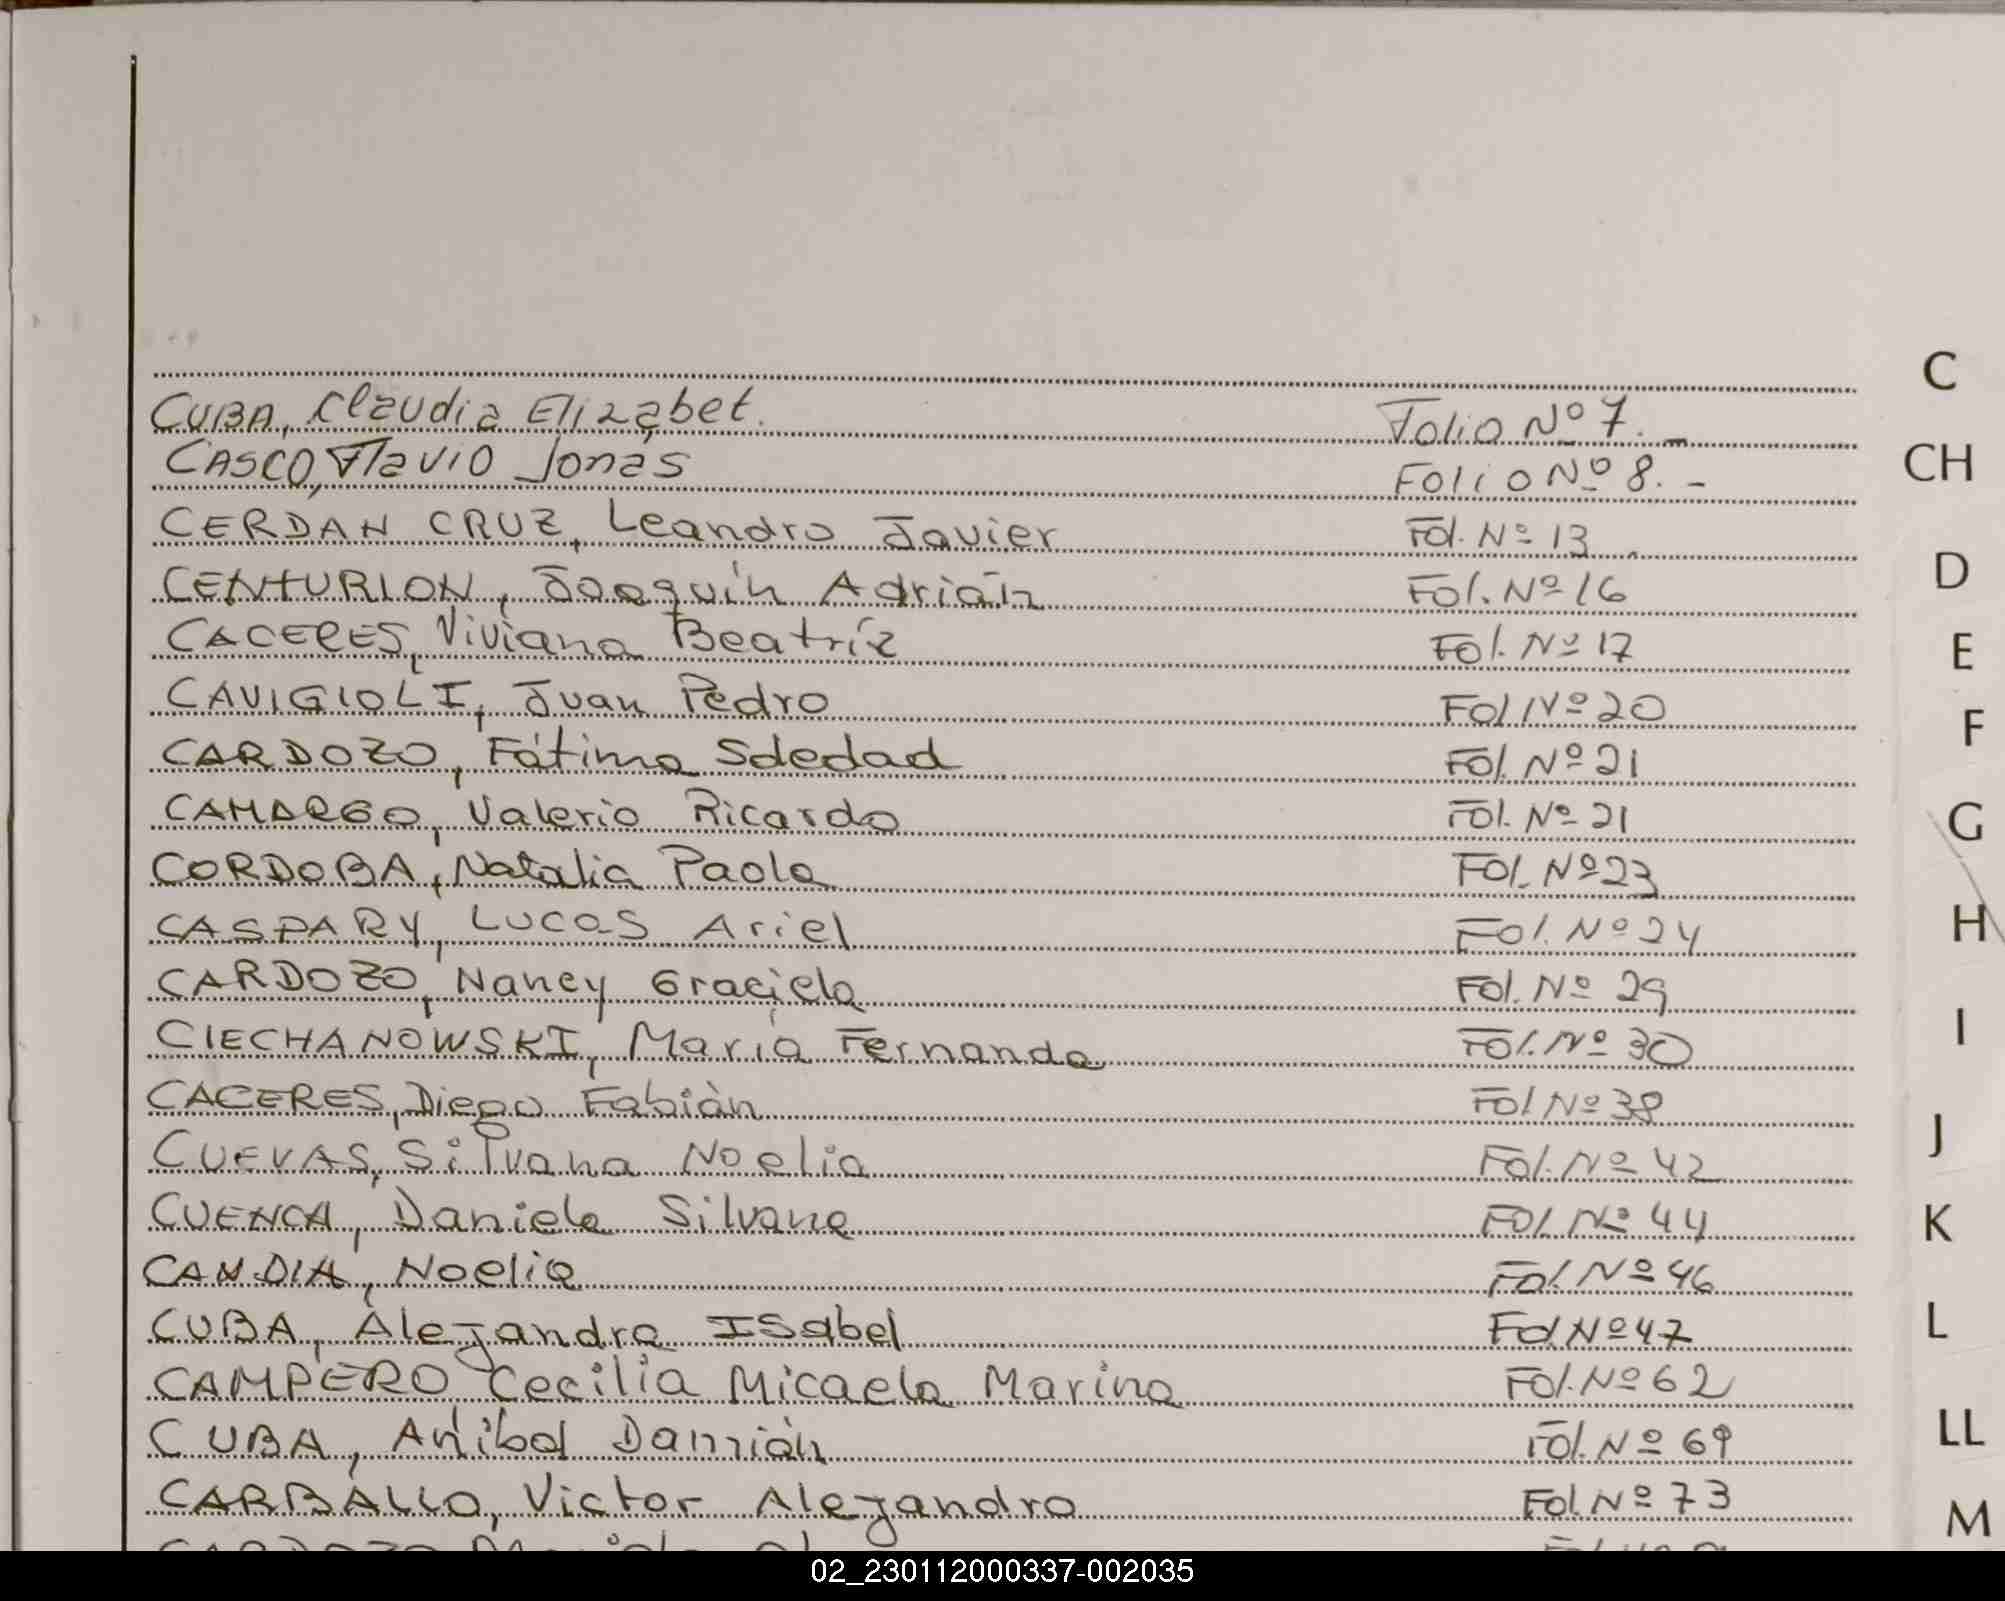 C
CUBA, Claudia Elizabet. Folio Nº 7. _
CASCO, Flavio Jonas Folio Nº 8. -
CH
CERDAN CRUZ, Leandro Javier Fol. Nº 13
CENTURION, Joaquín Adrián Fol. Nº 16
D
CACERES, Viviana Beatríz Fol. Nº 17
E
CAVIGIOLI, Juan Pedro Fol Nº 20
F
CARDOZO, Fátima Soledad Fol. Nº 21
CAMARGO, Valerio Ricardo Fol. Nº 21
G
CORDOBA, Natalia Paola Fol. Nº 23
CASPARY, Lucas Ariel Fol. Nº 24
H
CARDOZO, Nancy Graciela Fol. Nº 29
CIECHANOWSKI, María Fernanda Fol. Nº 30
I
CACERES, Diego Fabián Fol Nº 38
J
CUEVAS, Silvana Noelia Fol. Nº 42
CUENCA, Daniela Silvana Fol. Nº 44
K
CANDIA, Noelia Fol. Nº 46
CUBA, Alejandra Isabel Fol Nº 47
L
CAMPERO Cecilia Micaela Marina Fol. Nº 62
CUBA, Aníbal Damián Fol. Nº 69
LL
CARBALLO, Victor Alejandro Fol. Nº 73
M
02_230112000337-002035